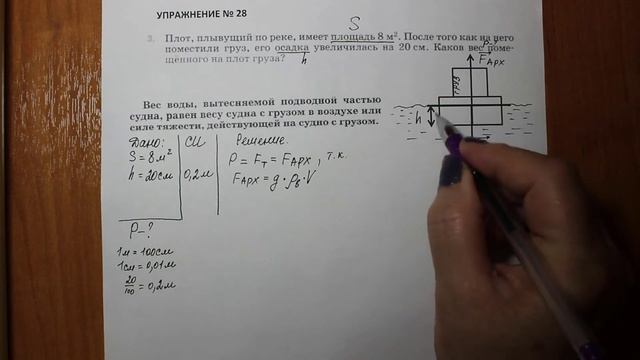 УПРАЖНЕНИЕ № 28
S
3. Плот, плывущий по реке, имеет площадь 8 м². После того как на него
поместили груз, его осадка увеличилась на 20 см. Каков вес поме-
щённого на плот груза?
h
F Арх
ГРУЗ
h
Вес воды, вытесняемой подводной частью
судна, равен весу судна с грузом в воздухе или
силе тяжести, действующей на судно с грузом.
Дано: СИ Решение.
S = 8 м²
h = 20 см 0,2 м
P = Fт = FАрх, т.к.
FАрх = g · ρв · V
P - ?
1 м = 100 см
1 см = 0,01 м
20/100 = 0,2 м